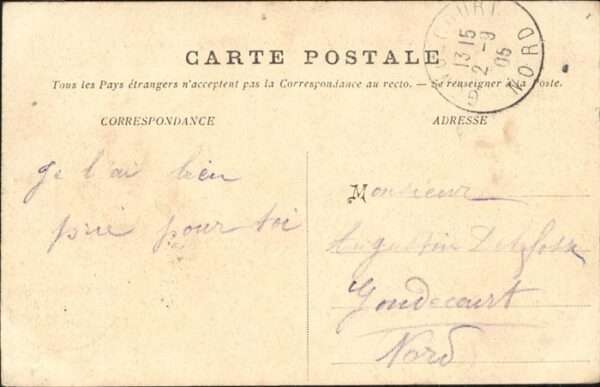 CARTE POSTALE
Tous les Pays étrangers n'acceptent pas la Correspondance au recto. — Se renseigner à la Poste.
CORRESPONDANCE
ADRESSE
Je l'ai bien
prié pour toi
Monsieur
Augustin
Gondecourt
Nord
13 15
2 - 9
05
NORD